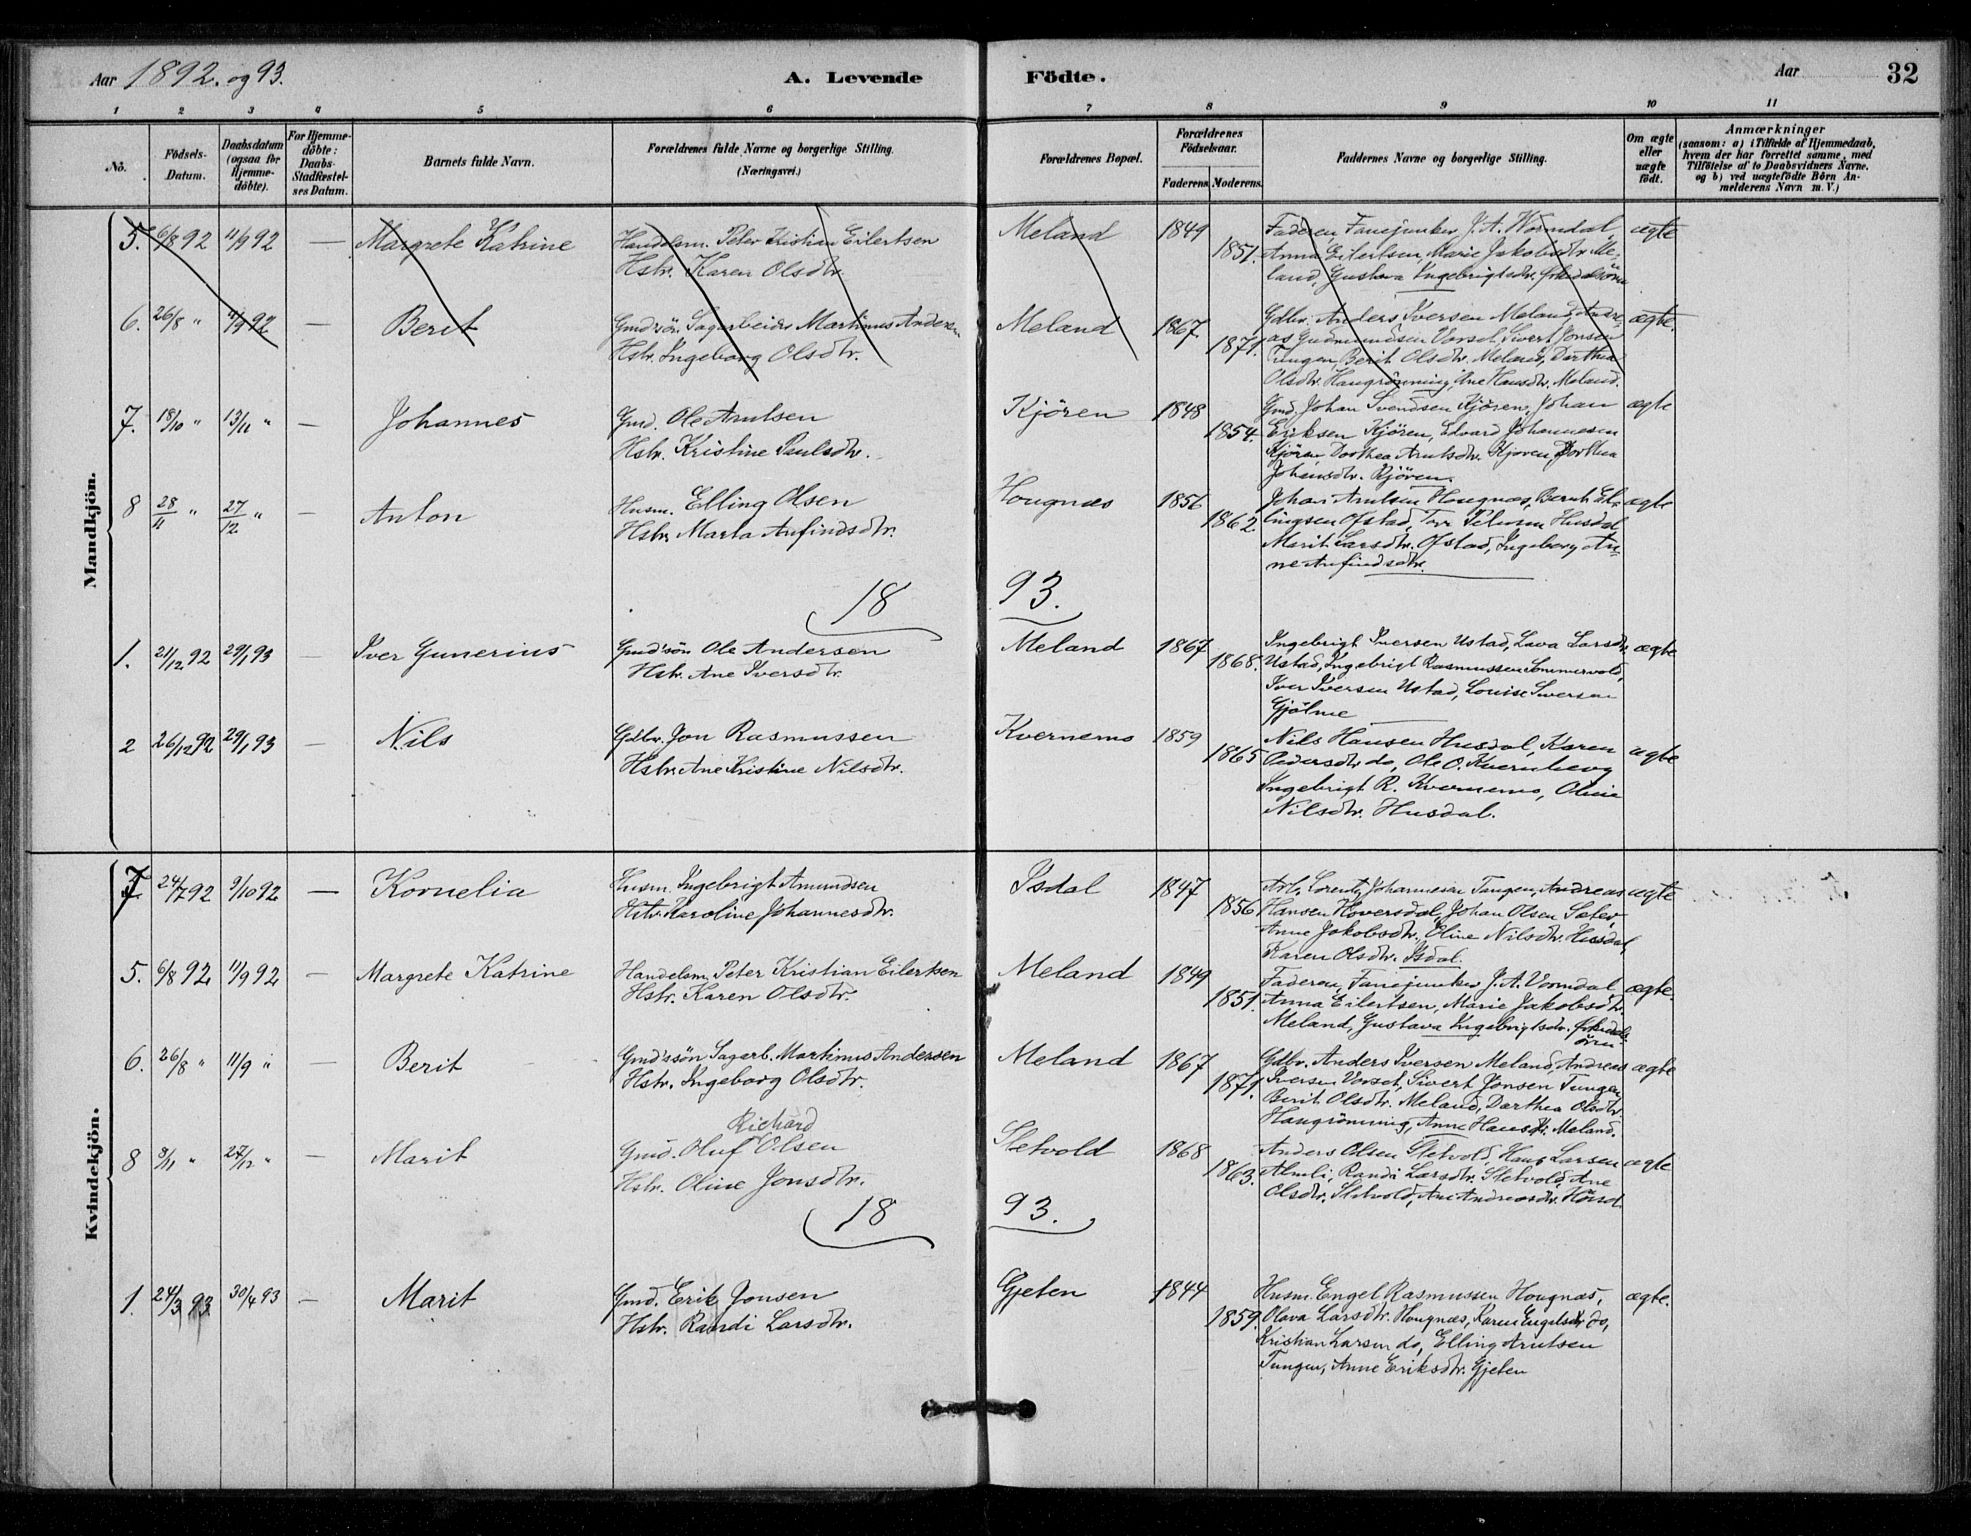 Aar 1892. og 93. A. Levende Födte. Aar 32
1 2 3 4 5 6 7 8 9 10 11
No.
Födsels-Datum.
Daabsdatum (ogsaa for Hjemme-döbte).
For Hjemme-döbte: Daabs-Stadfæstel-ses Datum.
Barnets fulde Navn.
Forældrenes fulde Navne og borgerlige Stilling. (Næringsvei.)
Forældrenes Bopæl.
Forældrenes Födselsaar.
Faderens Moderens.
Faddernes Navne og borgerlige Stilling.
Om ægte eller uægte födt.
Anmærkninger
(saasom: a) i Tilfælde af Hjemmedaab,
hvem der har forrettet samme, med
Tilföielse af to Daabsvidners Navne.
og b) ved uægtefödte Börn An-
melderens Navn m. V.)
Mandkjön.
5. 6/8 92 11/9 92 — Margrete Katrine Handelsm. Peter Kristian Eilertsen Meland 1849 Faderen, Fanejunker J. A. Wormdal, ægte
Hstr. Karen Olsdtr. 1851. Anna Eilertsen, Marie Jakobsdtr. Me-
land, Gustava Ingebrigtsdtr.
6. 26/8 " 11/9 92 — Berit Gmdsön. Sagarbeider Martinus Andersen Meland 1867 Gdbr. Anders Iversen Meland, Andre- ægte
Hstr. Ingeborg Olsdtr. 1871. as Gudmundsen Vorset, Sivert Jonsen
Tungen, Berit Olsdtr. Meland, Darthea
Olsdtr. Haugrönning, Ane Hansdtr. Meland.
7. 18/10 " 13/11 " — Johannes Gmd. Ole Arntsen Kjören 1848 Gmd. Johan Svendsen Kjören, Johan ægte
Hstr. Kristine Paulsdtr. 1854. Eriksen Kjören, Edvard Johannesen
Kjören Dorthea Arntsdtr. Kjören, Dorthea
Johansdtr. Kjören.
8 28/11 " 27/12 " — Anton Husm. Elling Olsen Hougnæs 1856 Johan Arntsen Hougnæs, Bernt El- ægte
Hstr. Marta Arfindsdtr. 1862. lingsen Ofstad, Tore Petersen Husdal
Marit Larsdtr. Ofstad, Ingeborg An-
ne Arfindsdtr.
18 93.
1. 21/12 92 29/1 93 — Iver Gunerius Gmdsön Ole Andersen Meland 1867 Ingebrigt Iversen Ustad, Lava Larsdtr. ægte
Hstr. Ane Iversdtr. 1868. Ustad, Ingebrigt Rasmussen Sommervold,
Iver Iversen Ustad, Louise Iversen
Gjölme
2 26/12 92 29/1 93 — Nils Gdbr. Jon Rasmussen Kvernemo 1859 Nils Hansen Husdal, Karen ægte
Hstr. Ane Kristine Nilsdtr. 1865 Pedersdtr do, Ole O. Kvernberg
Ingebrigt R. Kvernemo, Oline
Nilsdtr. Husdal.
Kvindekjön.
7 24/7 92 9/10 92 — Kornelia Husm. Ingebrigt Amundsen Isdal 1847 Arb. Lorents Johannesen Tangen, Andreas ægte
Hstr. Karoline Johannesdtr. 1856 Hansen Hoversdal, Johan Olsen Sæter
Anne Jakobsdtr. Oline Nilsdtr. Husdal,
Karen Olsdtr. Isdal.
5. 6/8 92 11/9 92 — Margrete Katrine Handelsm. Peter Kristian Eilertsen Meland 1849 Faderen, Fanejunker J. A. Vormdal ægte.
Hstr. Karen Olsdtr. 1851. Anna Eilertsen, Marie Jakobsdtr.
Meland, Gustava Ingebrigtsdtr.
6. 26/8 " 11/9 " — Berit Gmdssön Sagarb. Martinus Andersen Meland 1867 Gdbr. Anders Iversen Meland, Andreas ægte
Hstr. Ingeborg Olsdtr. 1871. Iversen Vorset, Sivert Jonsen Tungen,
Berit Olsdtr. Meland, Darthea Olsdtr
Haugrönning, Anne Hansdtr. Meland.
Richard
8 9/11 " 27/12 " — Marit Gmd. Oluf Olsen Sletvold 1868 Anders Olsen Sletvold, Hans Larsen ægte
Hstr. Oline Jonsdtr. 1863. Almli, Randi Larsdtr. Sletvold, Ane
Olsdtr. Sletvold, Ane Andreasdtr.
18 93.
1. 24/3 93 30/4 93 — Marit Gmd. Erik Jonsen Gjeten 1844 Husm. Engel Rasmussen Hougnæs, ægte.
Hstr. Randi Larsdtr. 1859. Olava Larsdtr. Hougnæs, Karen Engelsdtr do,
Kristian Larsen do, Elling Arntsen
Tungen, Anne Eriksdtr. Gjeten